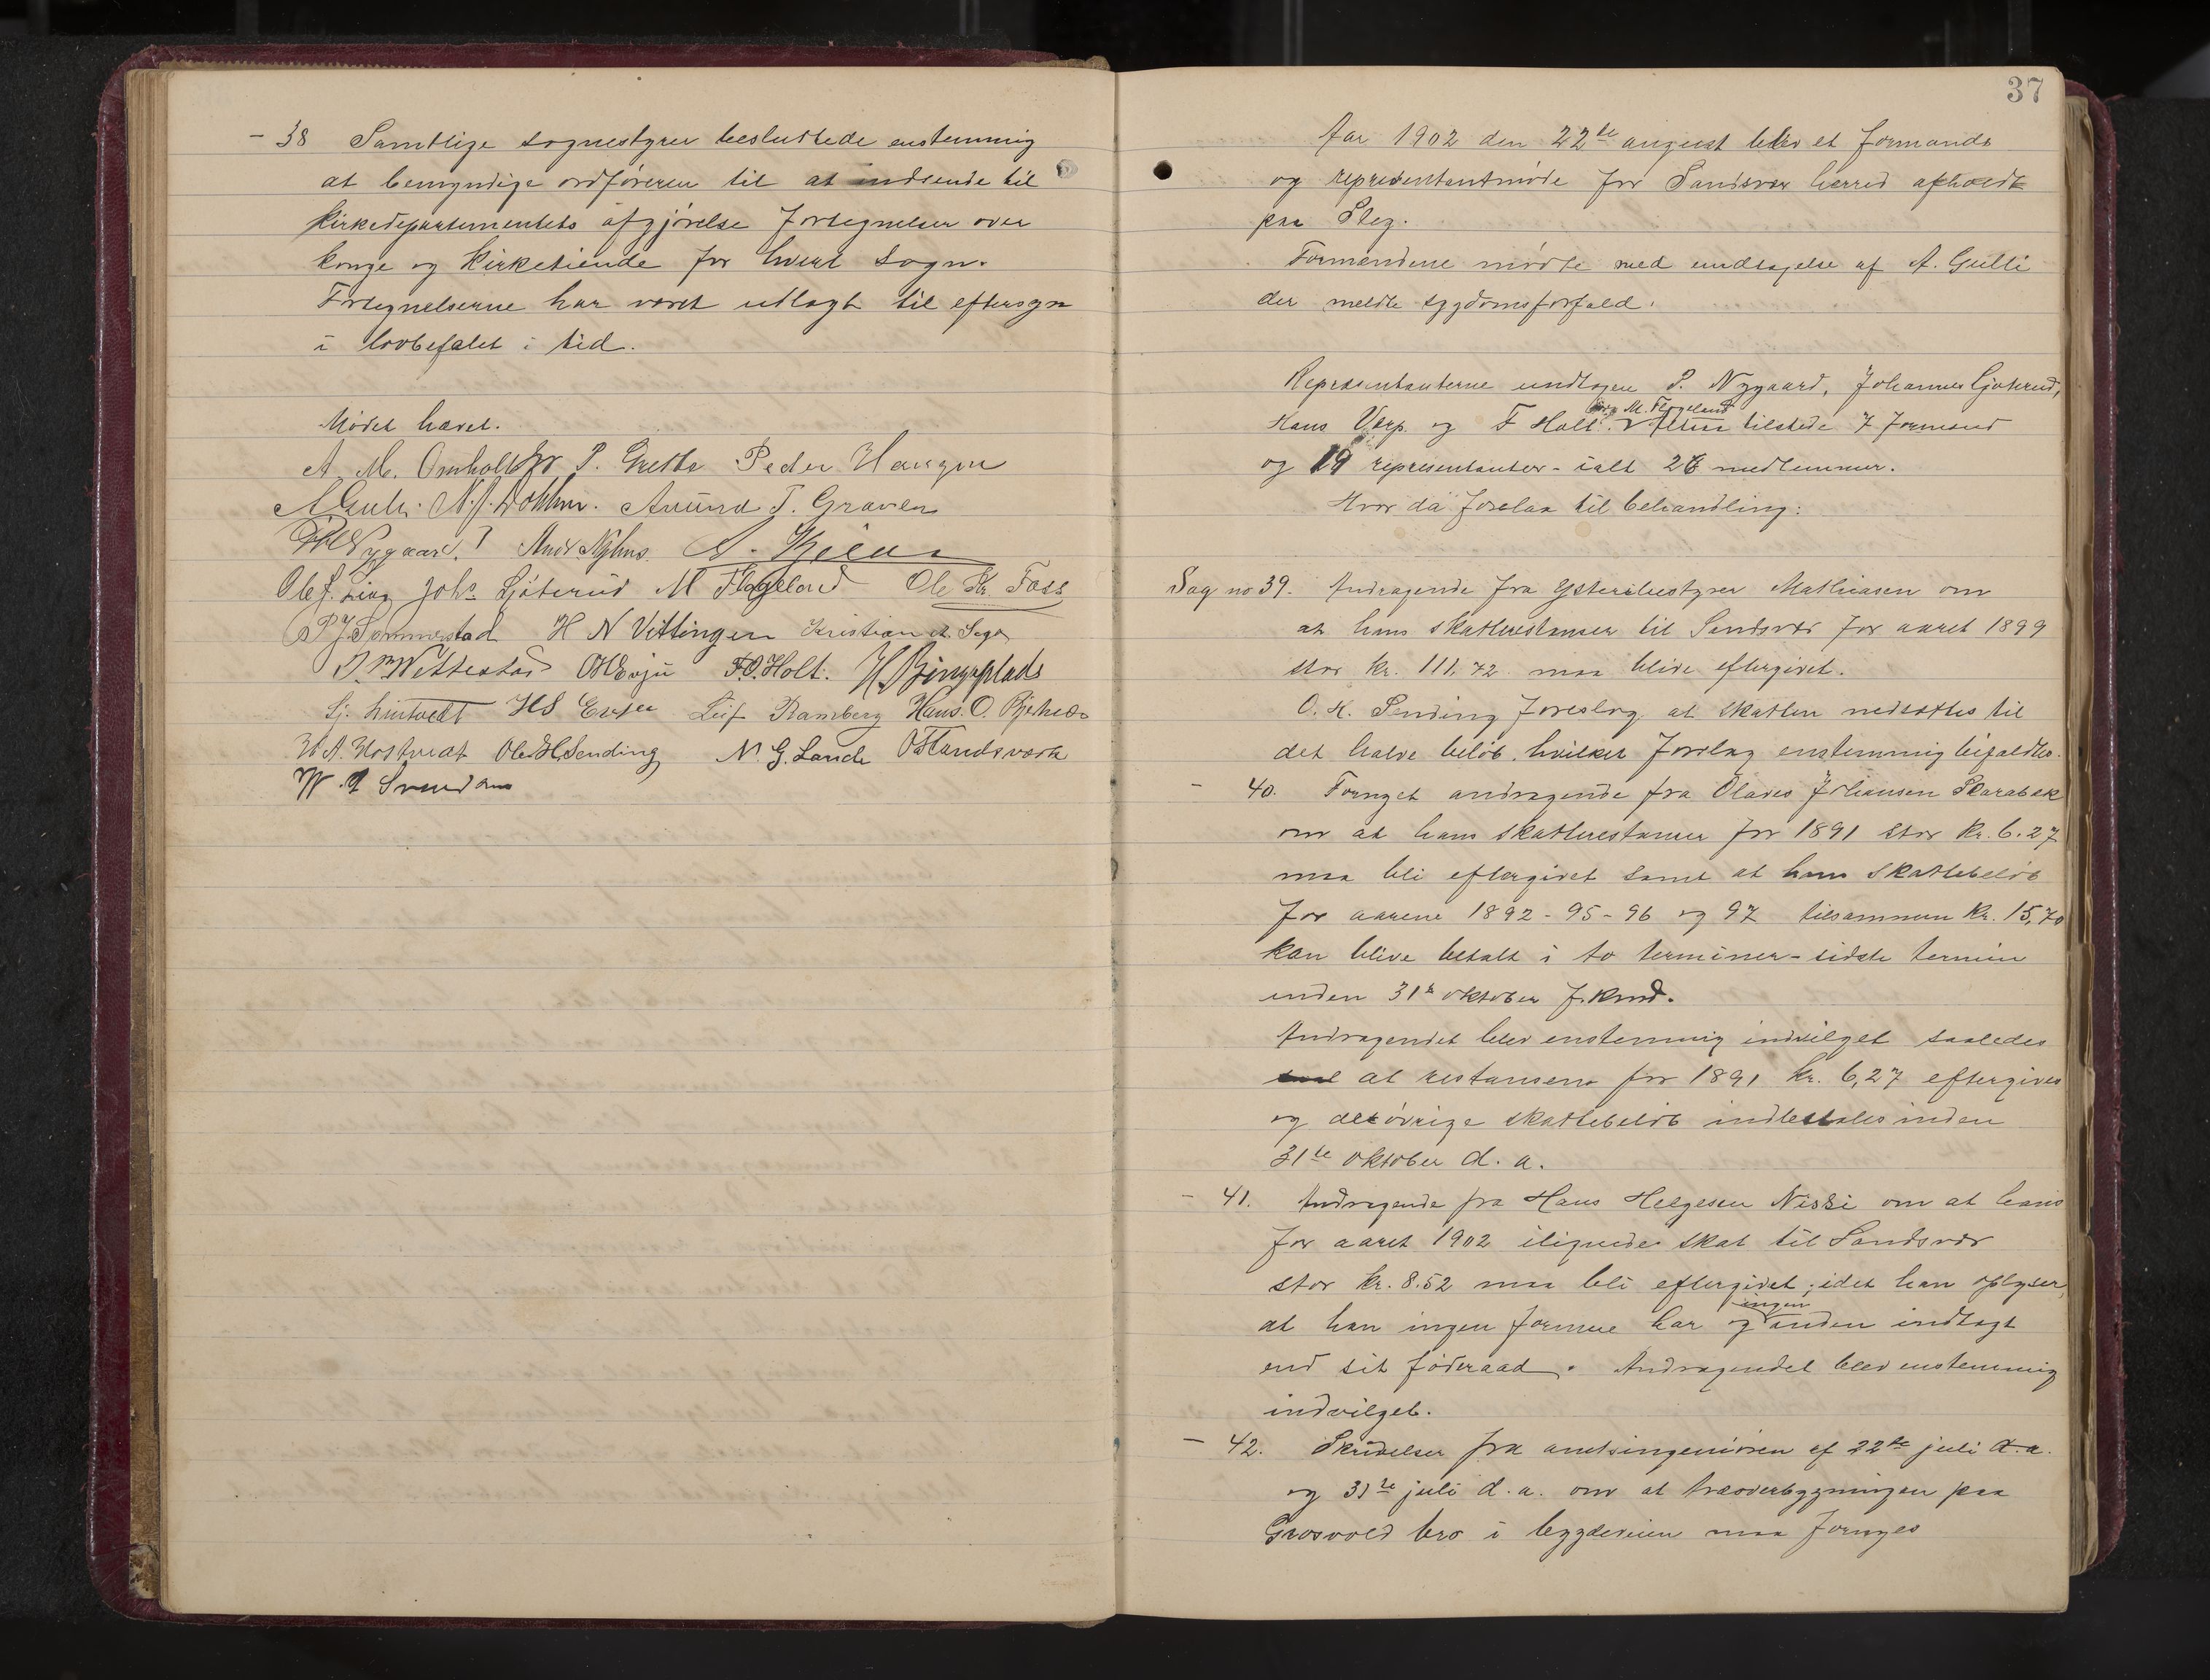 - 38 Samtlige sognestyrer besluttede enstemmig
at bemyndige ordføreren til at indsende til
kirkedepartementets afgjørelse fortegnelser over
konge og kirketiende for hvert sogn.
Fortegnelserne har været udlagt til eftersyn
i lovbefalet i tid.
Mødet hævet.
A. M. Omholt P. Grette Peder Haugen
A Gulli. Amund T. Graven
Nygaard. And. Nyhus.
Ole J. Lia Johs Gjøterud M Flogeland Ole Kr. Foss
P J Sommerstad H N Vittingen Kristian
Wettestad O H Evju F.O. Holt. H. Bingsplads
Hintvedt H S Evju Leif Ramberg Hans. O.
Ole H. Sending N. G. Lande O Handsværk
37
Aar 1902 den 22de august blev et formands
og representantmøde for Sandsvær herred afholdt
paa Steg.
Formændene mødte med undtagelse af A. Gulli
der meldte sygdomsforfald.
Representanterne undtagen P. Nygaard, Johannes Gjøterud,
og M. Flogeland
Hans Verp. og F Holt. tilstede 7 formænd
og 19 representanter - ialt 26 medlemmer.
Hvor da forelaa til behandling:
Sag no 39. Andragende fra ysteribestyrer Mathiasen om
at hans skatterestanser til Sandsvær for aaret 1899
stor kr. 111,72 maa blive eftergivet.
O. H. Sending foreslog at skatten nedsættes til
det halve beløb, hvilket forslag enstemmig bifaldtes.
- 40. Fornyet andragende fra Olaves Johansen Skarabæk
om at hans skatterestanser for 1891 stor kr. 6.27
maa bli eftergivet samt at hans skattebeløb
for aarene 1892 - 95 - 96 og 97 tilsammen kr. 15,70
kan blive betalt i to terminer - sidste termin
inden 31te oktober f. kmd.
Andragendet blev enstemmig indvilget saaledes
at restansen for 1891 kr. 6,27 eftergives
og det øvrige skattebeløb indbetales inden
31te oktober d. a.
- 41. Andragende fra Hans Helgesen Nisi om at hans
for aaret 1902 ilignede skat til Sandsvær
stor kr. 8.52 maa bli eftergivet, idet han oplyser,
ingen
at han ingen formue har og anden indtægt
end sit føderaad. Andragendet blev enstemmig
indvilget.
- 42. Skrivelser fra amtsingeniøren af 22de juli d.a.
og 31te juli d. a. om at træoverbygningen paa
Grosvold bro i bygdeveien maa fornyes